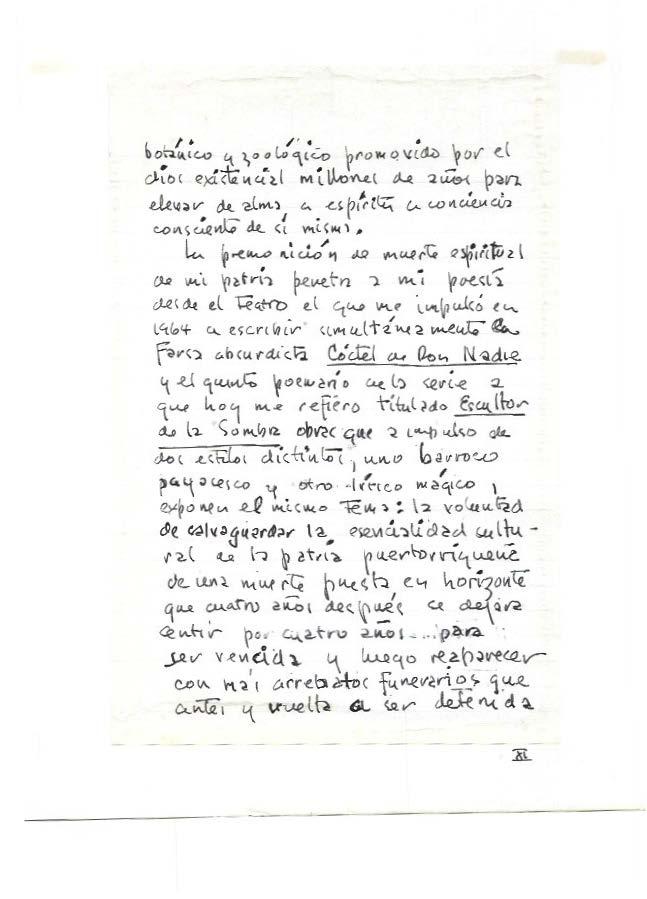 botánico y zoológico promovido por el
dios existencial millones de años para
elevar de alma, a espíritu a conciencia
consciente de sí misma.
La premonición de muerte espiritual
de mi patria penetra a mi poesía
desde el Teatro el que me impulsó en
1964 a escribir simultáneamente la
Farsa absurdista Cóctel de Don Nadie
y el quinto poemario de la serie a
que hoy me refiero titulado Escultor
de la Sombra obras que a impulso de
dos estilos distintos, uno barroco
payasesco y otro lírico mágico,
exponen el mismo Tema: la voluntad
de salvaguardar la esencialidad cultu-
ral de la patria puertorriqueña
de una muerte puesta en horizonte
que cuatro años después se dejara
sentir por cuatro años... para
ser vencida y luego reaparecer
con más arrebatos funerarios que
antes y vuelta a ser detenida
XI